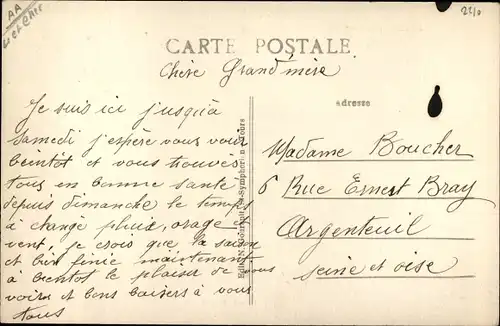 AA
L et Cher
2210
CARTE POSTALE
Chère Grand'mère
Adresse
Je suis ici jusqu'à
samedi j'espère vous voir
bientôt et vous trouver
tous en bonne santé
depuis dimanche le temps
à changé pluie, orage et
vent, je crois que la saison
et bien finie maintenant
à bientôt le plaisir de vous
voir et bons baisers à vous
tous
Madame Boucher
6 Rue Ernest Bray
Argenteuil
Seine et oise